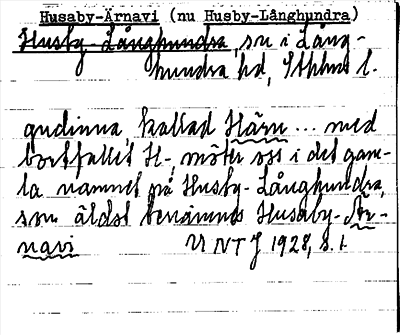 Husaby-Ärnavi (nu Husby-Långhundra)
Husby-Långhundra, sn i Lång-
hundra hd, Sthlms l.
gudinna, kallad Härn ... med
bortfallet H-, möter oss i det gam-
la namnet på Husby-Långhundra,
som äldst benämnes Husaby-Är-
navi UNT J 1928, s. 1.